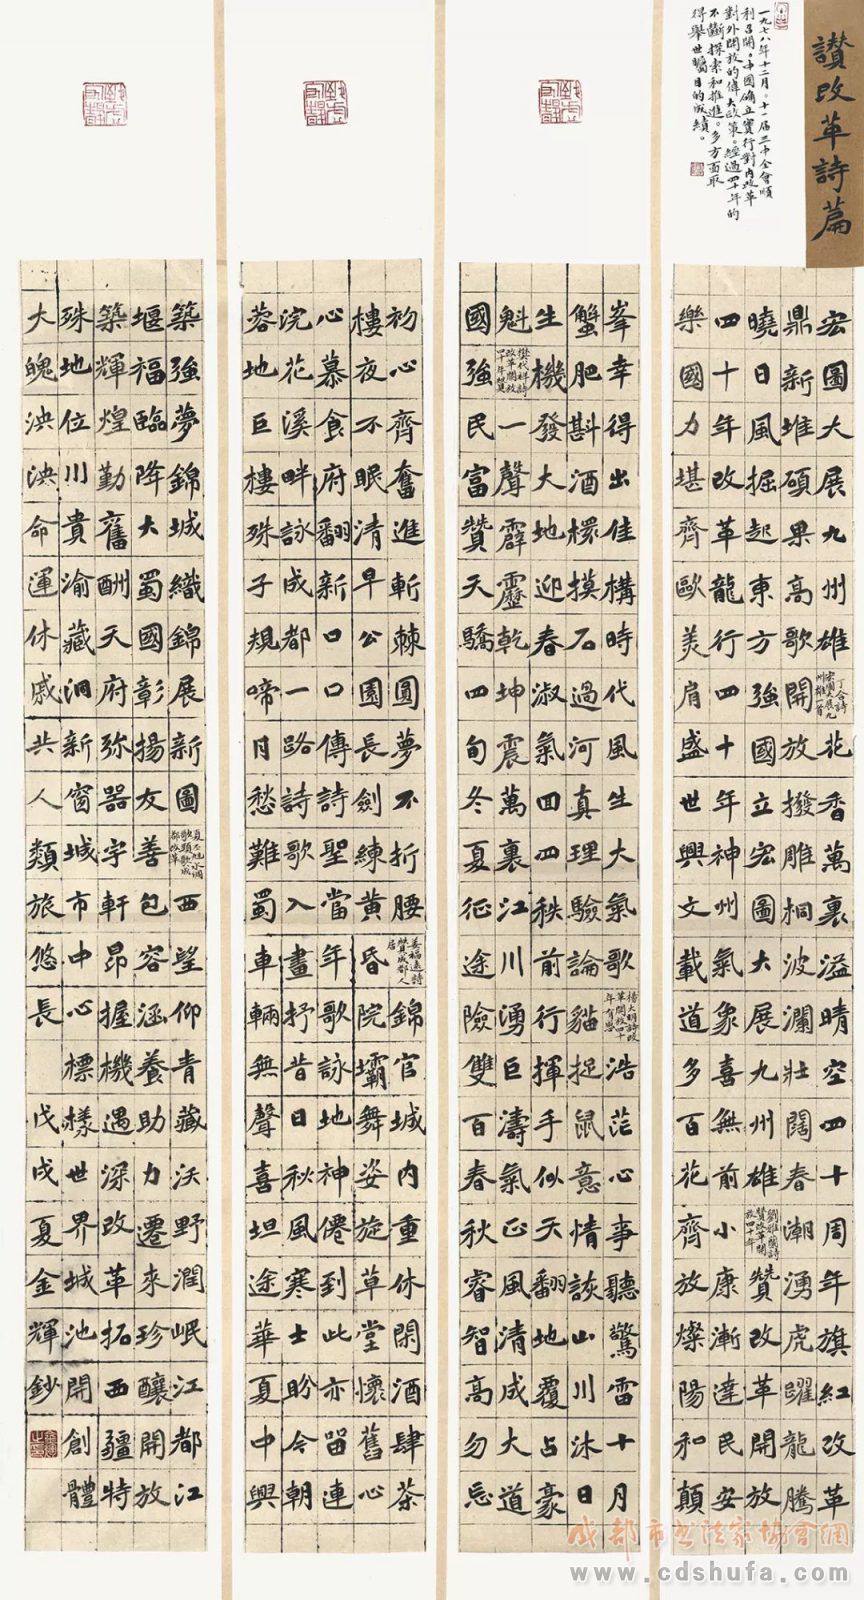 讚改革詩篇
一九七八年十二月。十一届三中全會順
利召開。中國確立實行對内改革
對外開放的偉大政策。經過四十年的
不斷探索和推進。多方面取
得舉世矚目的成績。
宏圖大展九州雄丁合詩宏圖大展九州雄一首花香萬裏溢晴空四十周年旗紅改革
鼎新堆碩果高歌開放撥雕桐波瀾壯闊春潮湧虎躍龍騰
曉日風掘起東方強國立宏圖大展九州雄劉雅蘭詩贊改革開放四十年贊改革開放
四十年改革龍行四十年神州氣象喜無前小康漸達民安
樂國力堪齊歐美肩盛世興文載道多百花齊放燦陽和顛
峯幸得出佳構時代風生大氣歌楊大明詩改革開放四十年有思浩茫心事聽驚雷十月
蟹肥斟酒摸石過河真理驗論貓捉鼠意情詼山川沐日
生機發大地迎春淑氣回四秩前行揮手似天翻地覆占豪
魁樊代祥詩改革開放四十年一聲霹靂乾坤震萬裏江川湧巨濤氣正風清成大道
國強民富贊天驕四旬冬夏征途險雙百春秋睿智高勿忘
初心齊奮進斬棘圓夢不折腰姜福遠詩贊成都人居錦官城内重休閑酒肆茶
樓夜不眠清早公園長劍練黃昏院壩舞姿旋草堂懷舊心
心慕食府翻新口口傳詩聖當年歌詠地神僊到此亦留連
浣花溪畔詠成都一路詩歌入畫抒昔日秋風寒士盼今朝
蓉地巨樓殊子規啼月愁難蜀車輛無聲喜坦途華夏中興
築強夢錦城織錦展新圖西望仰青藏沃野潤岷江都江
堰福臨降大蜀國彰揚友善包容涵養助力遷來珍釀開放
築輝煌勤奮酬天府弥器宇軒昂握機遇深改革拓西疆特
殊地位川貴渝藏洞新窗城市中心標樣世界城池開創體
大魄泱泱命運休戚共人類旅悠長戊戌夏金輝鈔
成都市书法家協會網
www.cdshufa.com